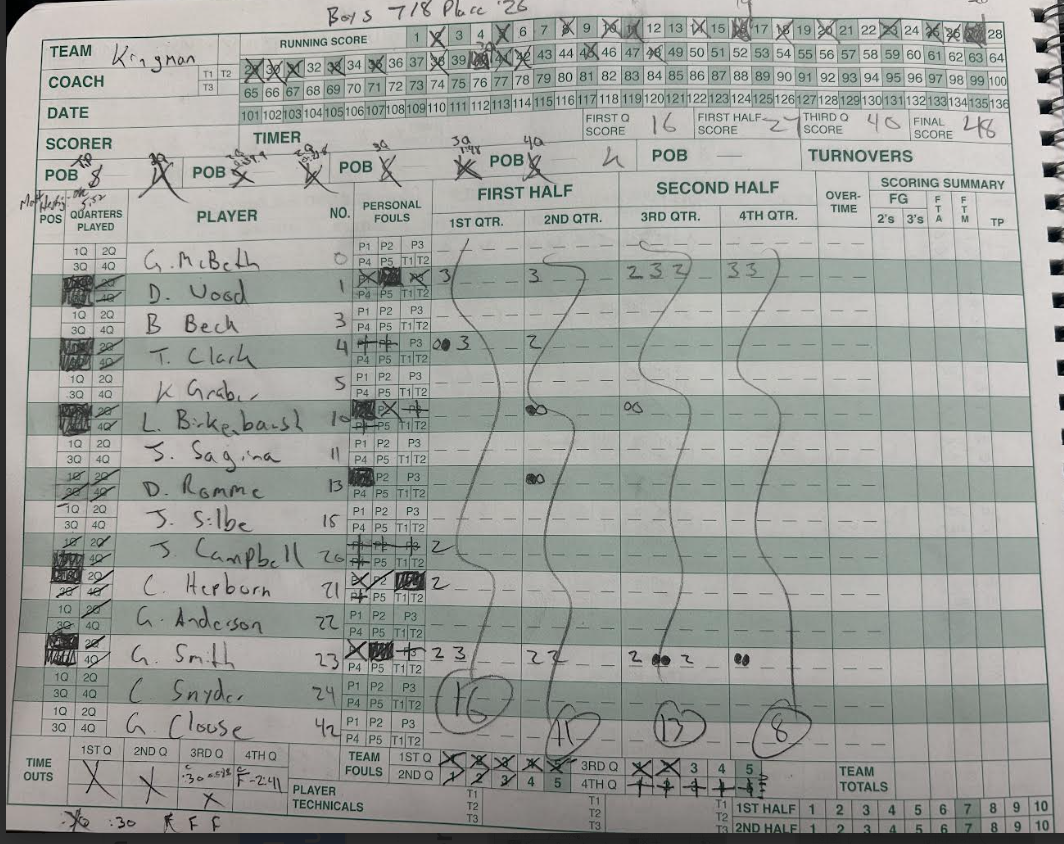 Boys 7/8 Place '26
TEAM Kingman RUNNING SCORE 1 2 3 4 5 6 7 8 9 10 11 12 13 14 15 16 17 18 19 20 21 22 23 24 25 26 27 28
29 30 31 32 33 34 35 36 37 38 39 40 41 42 43 44 45 46 47 48 49 50 51 52 53 54 55 56 57 58 59 60 61 62 63 64
COACH T1 T2 T3 65 66 67 68 69 70 71 72 73 74 75 76 77 78 79 80 81 82 83 84 85 86 87 88 89 90 91 92 93 94 95 96 97 98 99 100
DATE 101 102 103 104 105 106 107 108 109 110 111 112 113 114 115 116 117 118 119 120 121 122 123 124 125 126 127 128 129 130 131 132 133 134 135 136
SCORER TIMER FIRST Q SCORE 16 FIRST HALF SCORE 27 THIRD Q SCORE 40 FINAL SCORE 48
POB POB POB POB 4 POB — TURNOVERS
POS QUARTERS PLAYED PLAYER NO. PERSONAL FOULS FIRST HALF SECOND HALF OVER-TIME SCORING SUMMARY
1ST QTR. 2ND QTR. 3RD QTR. 4TH QTR. FG 2's 3's FTA FTM TP
1Q 2Q 3Q 4Q G. McBeth 0 P1 P2 P3 P4 P5 T1 T2
D. Wood 1 3 3 2 3 2 3 3
1Q 2Q 3Q 4Q B Beck 3 P1 P2 P3 P4 P5 T1 T2
T. Clark 4 P3 P4 P5 T1 T2 3 2
1Q 2Q 3Q 4Q K Graber 5 P1 P2 P3 P4 P5 T1 T2
L. Birkenbaugh 10 P5 T1 T2
1Q 2Q 3Q 4Q J. Sagina 11 P1 P2 P3 P4 P5 T1 T2
D. Romme 13 P2 P3 P4 P5 T1 T2
1Q 2Q 3Q 4Q J. Silbe 15 P1 P2 P3 P4 P5 T1 T2
J Campbell 20 P5 T1 T2 2
C. Hepburn 21 P5 T1 T2 2
G. Anderson 22 P1 P2 P3 P4 P5 T1 T2
G. Smith 23 P4 P5 T1 T2 2 3 2 2 2 2
1Q 2Q 3Q 4Q C Snyder 24 P1 P2 P3 P4 P5 T1 T2 16
1Q 2Q 3Q 4Q G Clouse 42 P1 P2 P3 P4 P5 T1 T2 11 13 8
TIME OUTS 1ST Q 2ND Q 3RD Q 4TH Q TEAM FOULS 1ST Q 1 2 3 4 5 3RD Q 1 2 3 4 5 TEAM TOTALS
X X F-2:41 2ND Q 1 2 3 4 5 4TH Q 1 2 3 4 5
X PLAYER TECHNICALS T1 T2 T3 T1 T2 T3 T1 T2 T3 1ST HALF 1 2 3 4 5 6 7 8 9 10
:30 F F 2ND HALF 1 2 3 4 5 6 7 8 9 10